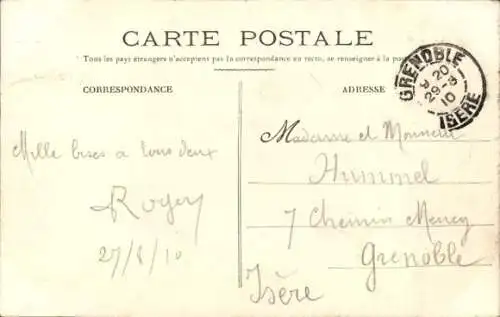 CARTE POSTALE
Tous les pays étrangers n'acceptent pas la correspondance au recto, se renseigner à la poste
CORRESPONDANCE
Mille bises a tous deux
Roger
27/8/10
ADRESSE
GRENOBLE
9 20
29-8
10
ISÈRE
Madame et Monsieur
Hummel
7 Chemin
Grenoble
Isère